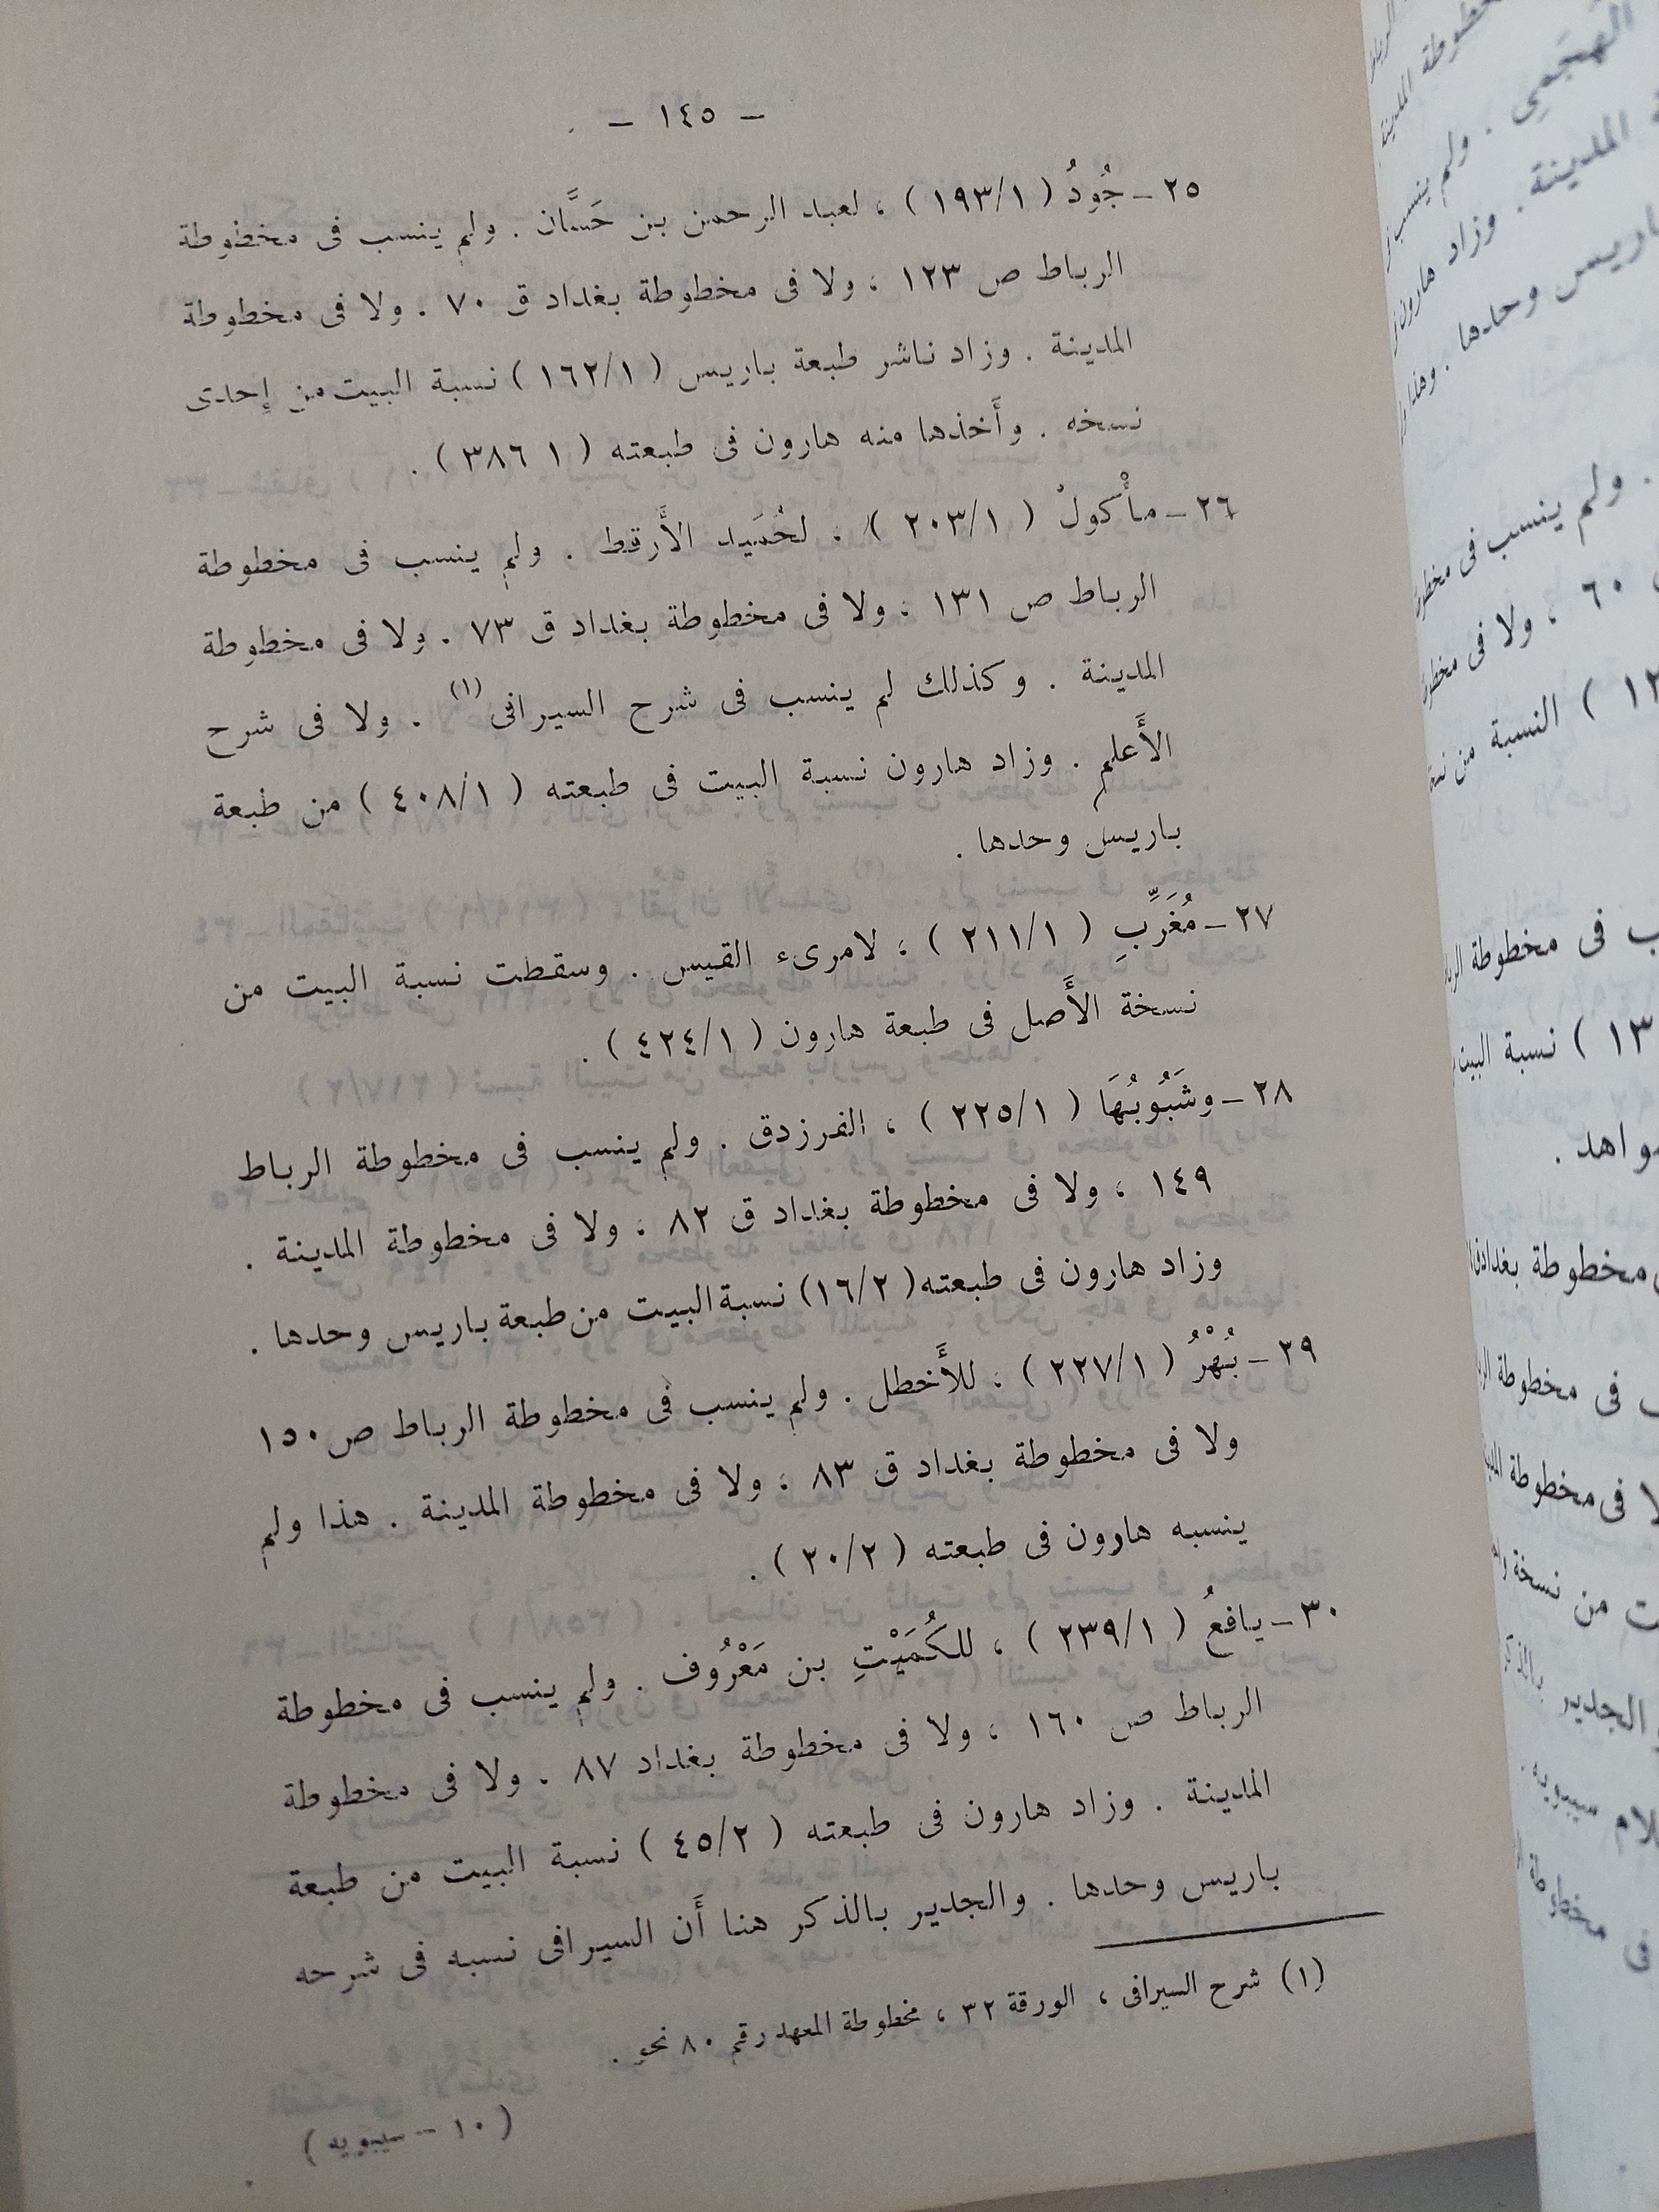 – ١٤٥ –
٢٥ – جُودُ ( ١٩٣/١ ) ، لعبد الرحمن بن حَسَّان . ولم ينسب فى مخطوطة
الرباط ص ١٢٣ ، ولا فى مخطوطة بغداد ق ٧٠ . ولا فى مخطوطة
المدينة . وزاد ناشر طبعة باريس ( ١٦٢/١ ) نسبة البيت من إحدى
نسخه . وأَخذها منه هارون فى طبعته ( ١ ٣٨٦ ) .
٢٦ – مأْكولْ ( ٢٠٣/١ ) ، لحُمَيد الأَرقط . ولم ينسب فى مخطوطة
الرباط ص ١٣١ ، ولا فى مخطوطة بغداد ق ٧٣ . ولا فى مخطوطة
المدينة . وكذلك لم ينسب فى شرح السيرافى (١) . ولا فى شرح
الأَعلم . وزاد هارون نسبة البيت فى طبعته ( ٤٠٨/١ ) من طبعة
باريس وحدها .
٢٧ – مُغَرِّبِ ( ٢١١/١ ) ، لامرىء القيس . وسقطت نسبة البيت من
نسخة الأَصل فى طبعة هارون ( ٤٢٤/١ ) .
٢٨ – وشَبُوبُهَا ( ٢٢٥/١ ) ، الفرزدق . ولم ينسب فى مخطوطة الرباط
١٤٩ ، ولا فى مخطوطة بغداد ق ٨٢ ، ولا فى مخطوطة المدينة .
وزاد هارون فى طبعته ( ١٦/٢ ) نسبة البيت من طبعة باريس وحدها .
٢٩ – بُهْرُ ( ٢٢٧/١ ) ، للأَخطل . ولم ينسب فى مخطوطة الرباط ص ١٥٠
ولا فى مخطوطة بغداد ق ٨٣ ، ولا فى مخطوطة المدينة . هذا ولم
ينسبه هارون فى طبعته ( ٢٠/٢ ) .
٣٠ – يافعُ ( ٢٣٩/١ ) ، للكُمَيْتِ بن مَعْرُوف . ولم ينسب فى مخطوطة
الرباط ص ١٦٠ ، ولا فى مخطوطة بغداد ٨٧ . ولا فى مخطوطة
المدينة . وزاد هارون فى طبعته ( ٤٥/٢ ) نسبة البيت من طبعة
باريس وحدها . والجدير بالذكر هنا أَن السيرافى نسبه فى شرحه
(١) شرح السيرافى ، الورقة ٣٢ ، مخطوطة المعهد رقم ٨٠ نحو .
( ١٠ – سيبويه )
مخطوطة المدينة
الهجيمى . ولم ينسب
المدينة . وزاد هارون
باريس وحدها . وهذا
. ولم ينسب فى
٦٠ ، ولا فى
) النسبة من
فى مخطوطة
) نسبة البيت
مخطوطة بغداد
فى مخطوطة
فى مخطوطة
من نسخة
الجدير بالذكر
سيبويه .
فى مخطوطة